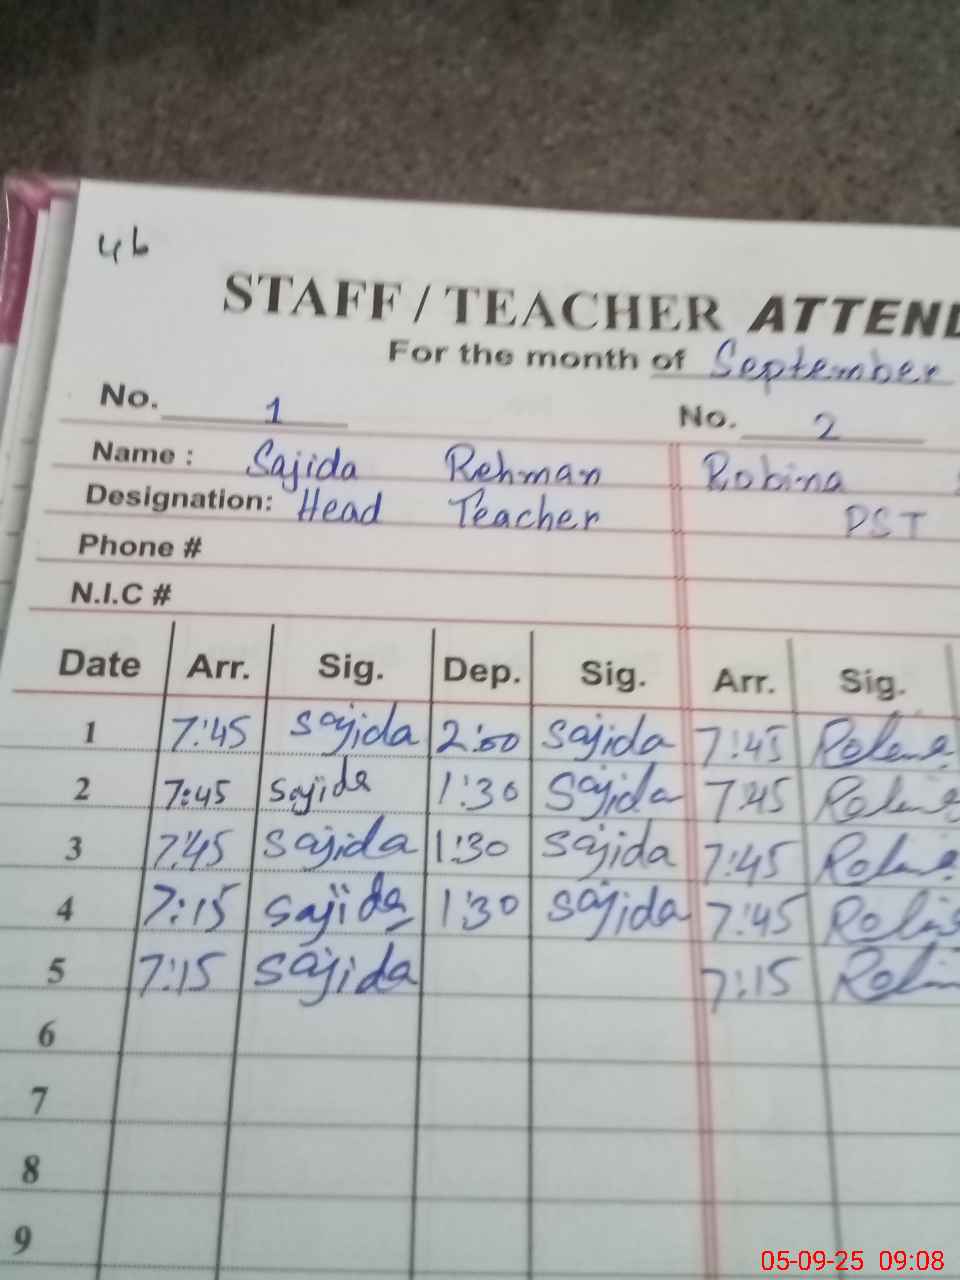 46
STAFF / TEACHER ATTEND
For the month of September
No. 1 No. 2
Name : Sajida Rehman Robina
Designation: Head Teacher PST
Phone #
N.I.C #
Date Arr. Sig. Dep. Sig. Arr. Sig.
1 7:45 Sajida 2:00 Sajida 7:45
2 7:45 Sajida 1:30 Sajida 7:45
3 7:45 Sajida 1:30 Sajida 7:45
4 7:15 Sajida 1:30 Sajida 7:45
5 7:15 Sajida 7:15
6
7
8
9
05-09-25 09:08